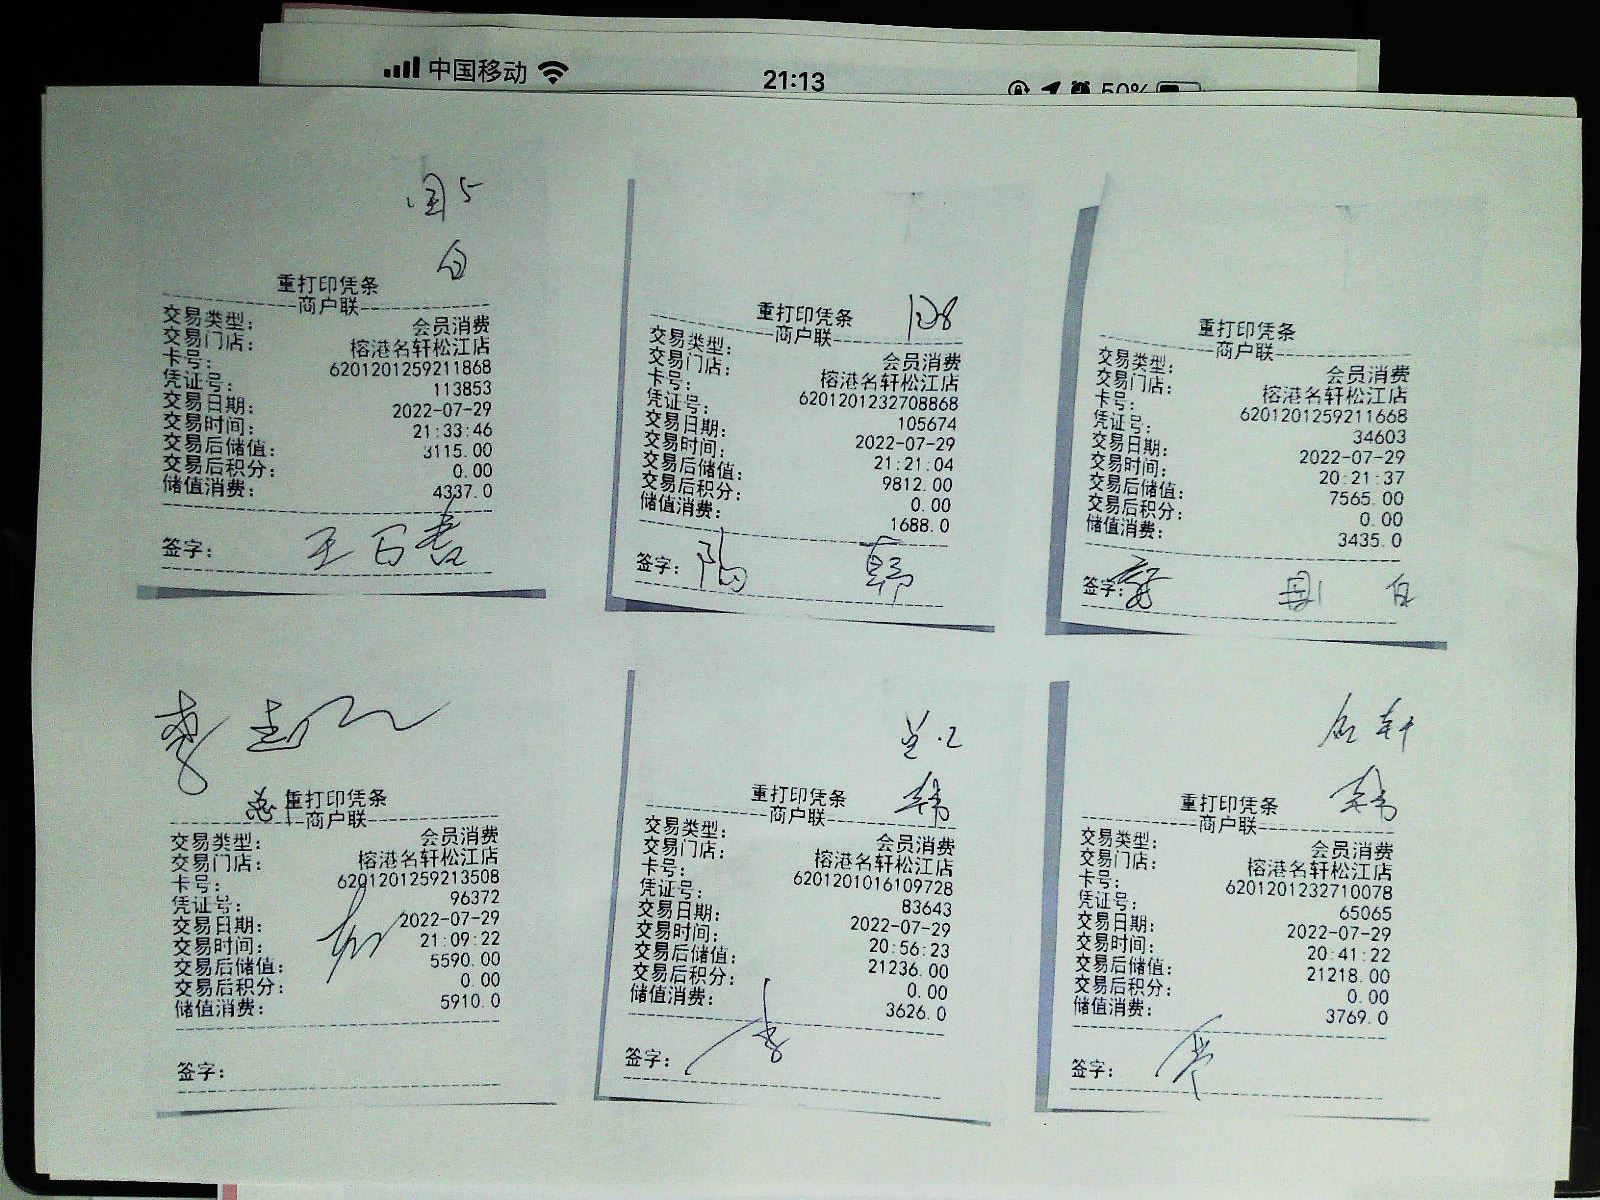 中国移动 21:13 50%
国5
白
重打印凭条
商户联
交易类型： 会员消费
交易门店： 榕港名轩松江店
卡号： 6201201259211868
凭证号： 113853
交易日期： 2022-07-29
交易时间： 21:33:46
交易后储值： 3115.00
交易后积分： 0.00
储值消费： 4337.0
签字：
重打印凭条
商户联
交易类型： 会员消费
交易门店： 榕港名轩松江店
卡号： 6201201232708868
凭证号： 105674
交易日期： 2022-07-29
交易时间： 21:21:04
交易后储值： 9812.00
交易后积分： 0.00
储值消费： 1688.0
签字：
重打印凭条
商户联
交易类型： 会员消费
交易门店： 榕港名轩松江店
卡号： 6201201259211668
凭证号： 34603
交易日期： 2022-07-29
交易时间： 20:21:37
交易后储值： 7565.00
交易后积分： 0.00
储值消费： 3435.0
签字： 白
重打印凭条
商户联
交易类型： 会员消费
交易门店： 榕港名轩松江店
卡号： 6201201259213508
凭证号： 96372
交易日期： 2022-07-29
交易时间： 21:09:22
交易后储值： 5590.00
交易后积分： 0.00
储值消费： 5910.0
签字：
兰.2
韩
重打印凭条
商户联
交易类型： 会员消费
交易门店： 榕港名轩松江店
卡号： 6201201016109728
凭证号： 83643
交易日期： 2022-07-29
交易时间： 20:56:23
交易后储值： 21236.00
交易后积分： 0.00
储值消费： 3626.0
签字：
名轩
韩
重打印凭条
商户联
交易类型： 会员消费
交易门店： 榕港名轩松江店
卡号： 6201201232710078
凭证号： 65065
交易日期： 2022-07-29
交易时间： 20:41:22
交易后储值： 21218.00
交易后积分： 0.00
储值消费： 3769.0
签字：